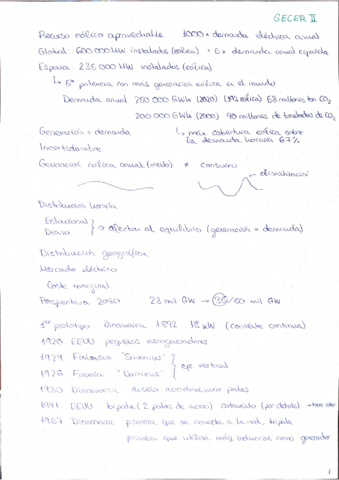 GECER II
Recurso eólico aprovechable 1000 × demanda eléctrica anual
Global 600 000 MW instalados (eólica) = 6 × demanda anual española
España 235 000 MW instalados (eólica)
↳ 5ª potencia con más generación eólica en el mundo
Demanda anual 250 000 GWh (2020) (19% eólica) 53 millones ton CO2
200 000 GWh (2000) 90 millones de toneladas de CO2
Generación = demanda ↳ máx. cobertura eólica sobre
la demanda horaria 67%
Incertidumbre
Generación eólica anual (viento) ≠ consumo
climatización
Distribución horaria
Estacional
Diaria
→ afectan al equilibrio (generación = demanda)
Distribución geográfica
Mercado eléctrico
Coste marginal
Perspectiva 23 mil GW → mil GW
1er prototipo Dinamarca 1892 18 kW (corriente continua)
1920 EEUU pequeños aerogeneradores
1924 Finlandia "Savonius"
1926 Francia "Darrieus"
eje vertical
1930 Dinamarca diseño aerodinámico palas
1941 EEUU bipala (2 palas de acero) sotavento (por detrás) →
1957 Dinamarca primera que se conecta a la red, tripala
primera que utiliza máq. inducción como generador
1